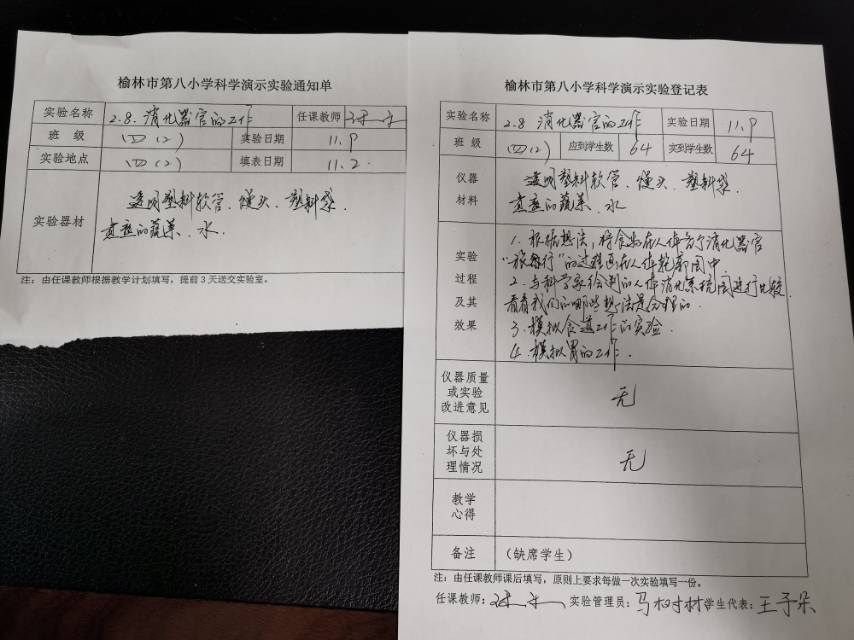 榆林市第八小学科学演示实验通知单
实验名称 2.8.消化器官的工作 任课教师
班 级 四(2) 实验日期 11.9
实验地点 四(2) 填表日期 11.2.
实验器材 透明塑料软管、馒头、塑料袋、
煮熟的蔬菜、水.
注：由任课教师根据教学计划填写，提前3天送交实验室。
榆林市第八小学科学演示实验登记表
实验名称 2.8 消化器官的工作 实验日期 11.9
班 级 四(2) 应到学生数 64 实到学生数 64
仪器材料 透明塑料软管、馒头、塑料袋、
煮熟的蔬菜、水
实验过程及其效果 1.根据想法,将食物在人体各个消化器官
“旅行”的过程画在人体轮廓图中
2.与科学家绘制的人体消化系统图进行比较
看看我们的哪些想法是合理的.
3.模拟食道工作的实验
4.模拟胃的工作.
仪器质量或实验改进意见 无
仪器损坏与处理情况 无
教学心得
备注 （缺席学生）
注：由任课教师课后填写，原则上要求每做一次实验填写一份。
任课教师： 实验管理员：马树林 学生代表：王予朵